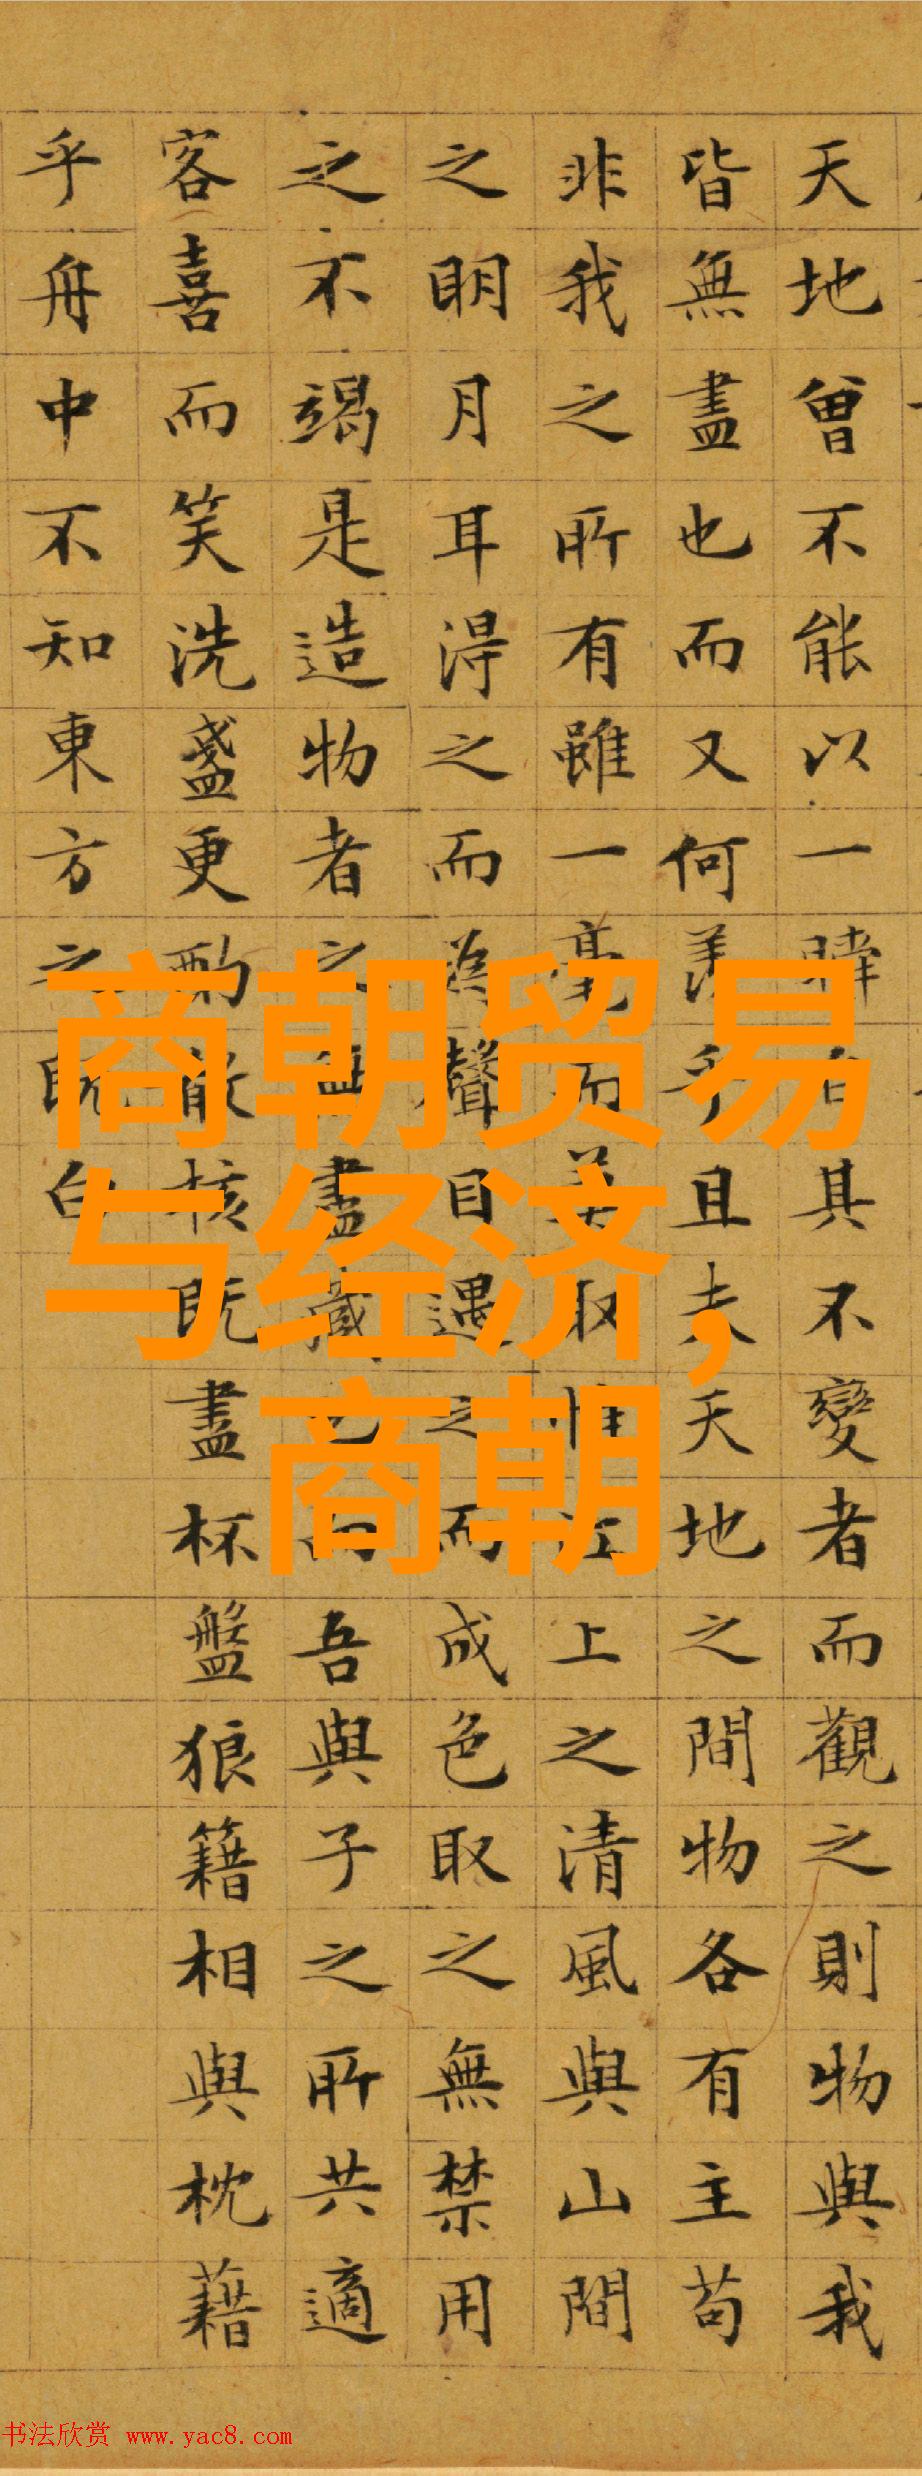 天地曾不能以一瞬自其不變者而觀之則物與我
皆無盡也而又何羨乎且夫天地之間物各有主苟
非我之所有雖一毫而莫取惟江上之清風與山間
之明月耳得之而為聲目遇之而成色取之無禁用
之不竭是造物者之無盡藏也而吾與子之所共適
客喜而笑洗盞更酌肴核既盡杯盤狼籍相與枕藉
乎舟中不知東方之既白
商朝贸易
与经济,
商朝
书法欣赏 www.yac8.com